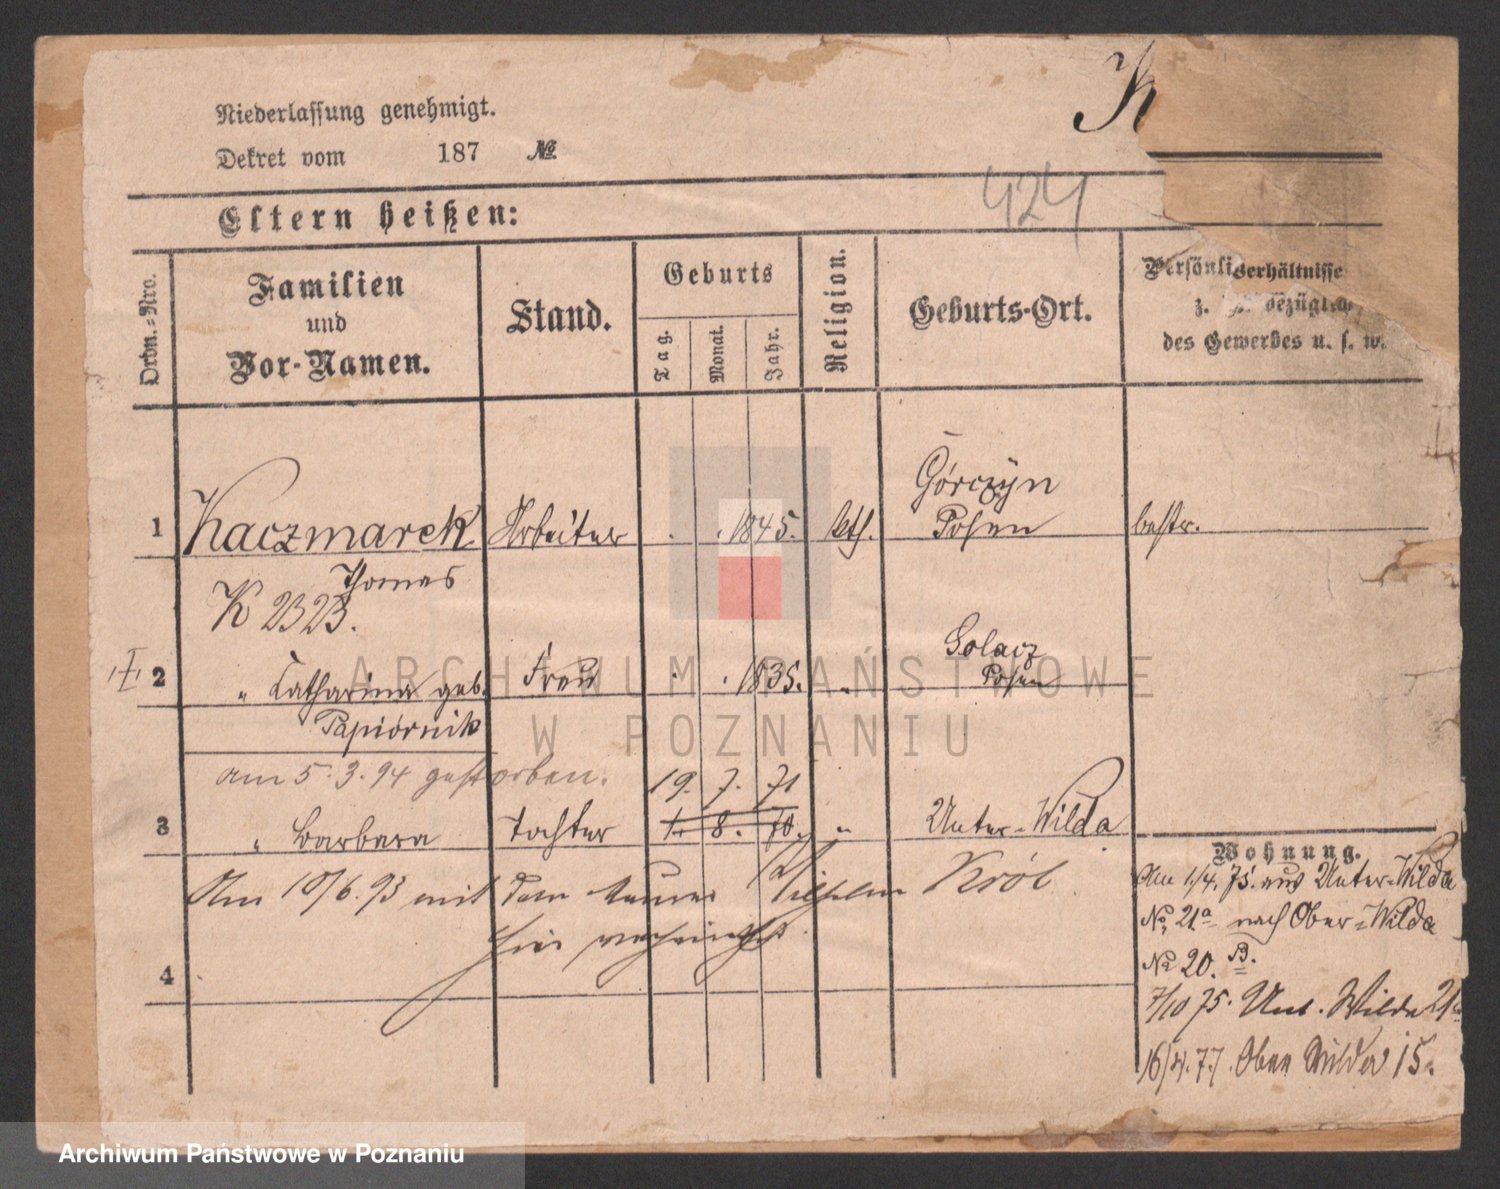 K
Niederlassung genehmigt.
Dekret vom 187 №
424
Eltern heißen:
Ordn.-Nro.
Familien und Vor-Namen.
Stand.
Geburts
Tag.
Monat.
Jahr.
Religion.
Geburts-Ort.
Persönli verhältnisse
z. bezügl
des Gewerbes u. s. w.
Górczyn
1 Kaczmarek Arbeiter 1845. kth. Posen bestr.
Thomas
K 2323.
Solacz
2 " Catharina geb. Frau 1835. " Posen
Papiórnik
am 5.3.94 gestorben.
19. 7. 71
3 " Barbara Tochter 1. 8. 70. " Unter-Wilda
Am 10/6.93 mit dem Maurer Wilhelm Król
hier verheirathet.
4
Wohnung.
Am 1./4. 75. aus Unter-Wilda
No. 21a nach Ober-Wilda
No 20. B.
7/10 75. Unt. Wilda 21a
16/4.77. Ober Wilda 15.
ARCHIWUM PAŃSTWOWE
W POZNANIU
Archiwum Państwowe w Poznaniu